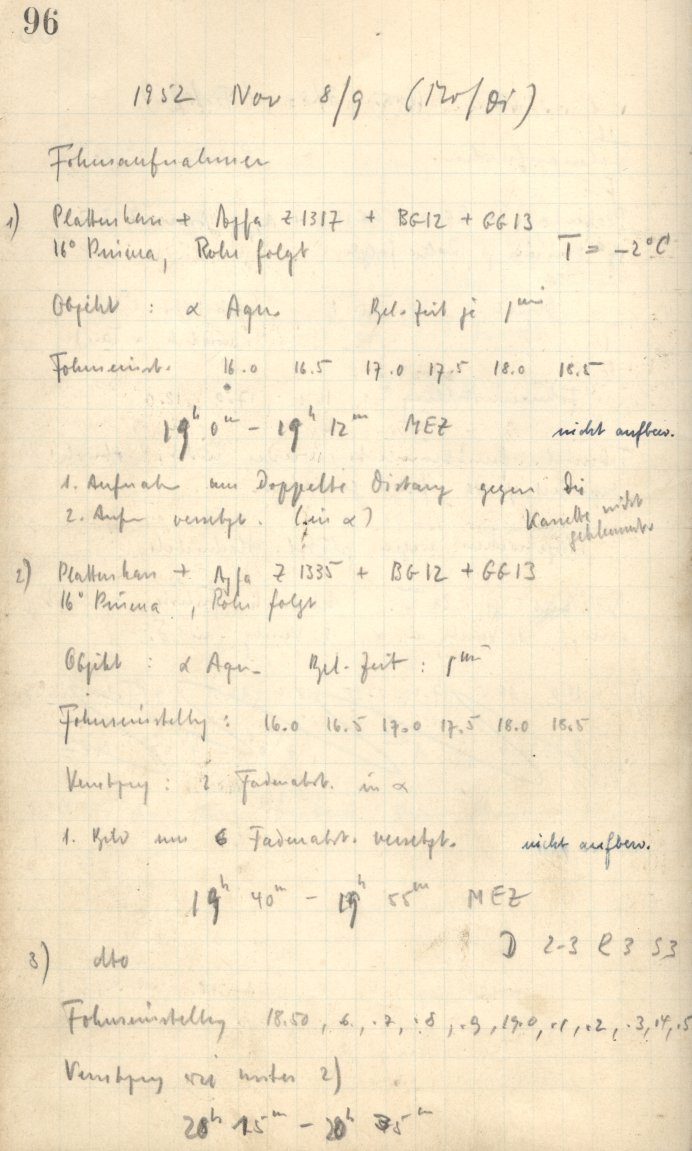 96
1952 Nov 8/9 (Mo/Di)
Fokusaufnahmen
1) Plattenkam + Agfa Z 1317 + BG12 + GG13
16° Prisma, Rohr folgt T = -2°C
Objekt : α Aqu. Bel.-Zeit je 1 min
Fokuseinst. 16.0 16.5 17.0 17.5 18.0 18.5
19h 0m - 19h 12m MEZ nicht aufbew.
1. Aufnahm um Doppelte Distanz gegen die
2. Aufn versetzt. (in α) Kassette nicht
geklemmt.
2) Plattenkam + Agfa Z 1335 + BG12 + GG13
16° Prisma, Rohr folgt
Objekt : α Aqu. Bel.-Zeit : 1 min
Fokuseinstellg : 16.0 16.5 17.0 17.5 18.0 18.5
Versetzung : 2 Fadenabst. in α
1. Bild um 6 Fadenabst. versetzt. nicht aufbew.
19h 40m - 19h 55m MEZ
D 2-3 R 3 S3
3) dto
Fokuseinstellg 18.50, .6, .7, .8, .9, 19.0, .1, .2, .3, .4, .5
Versetzung wie unter 2)
20h 15m - 20h 35m